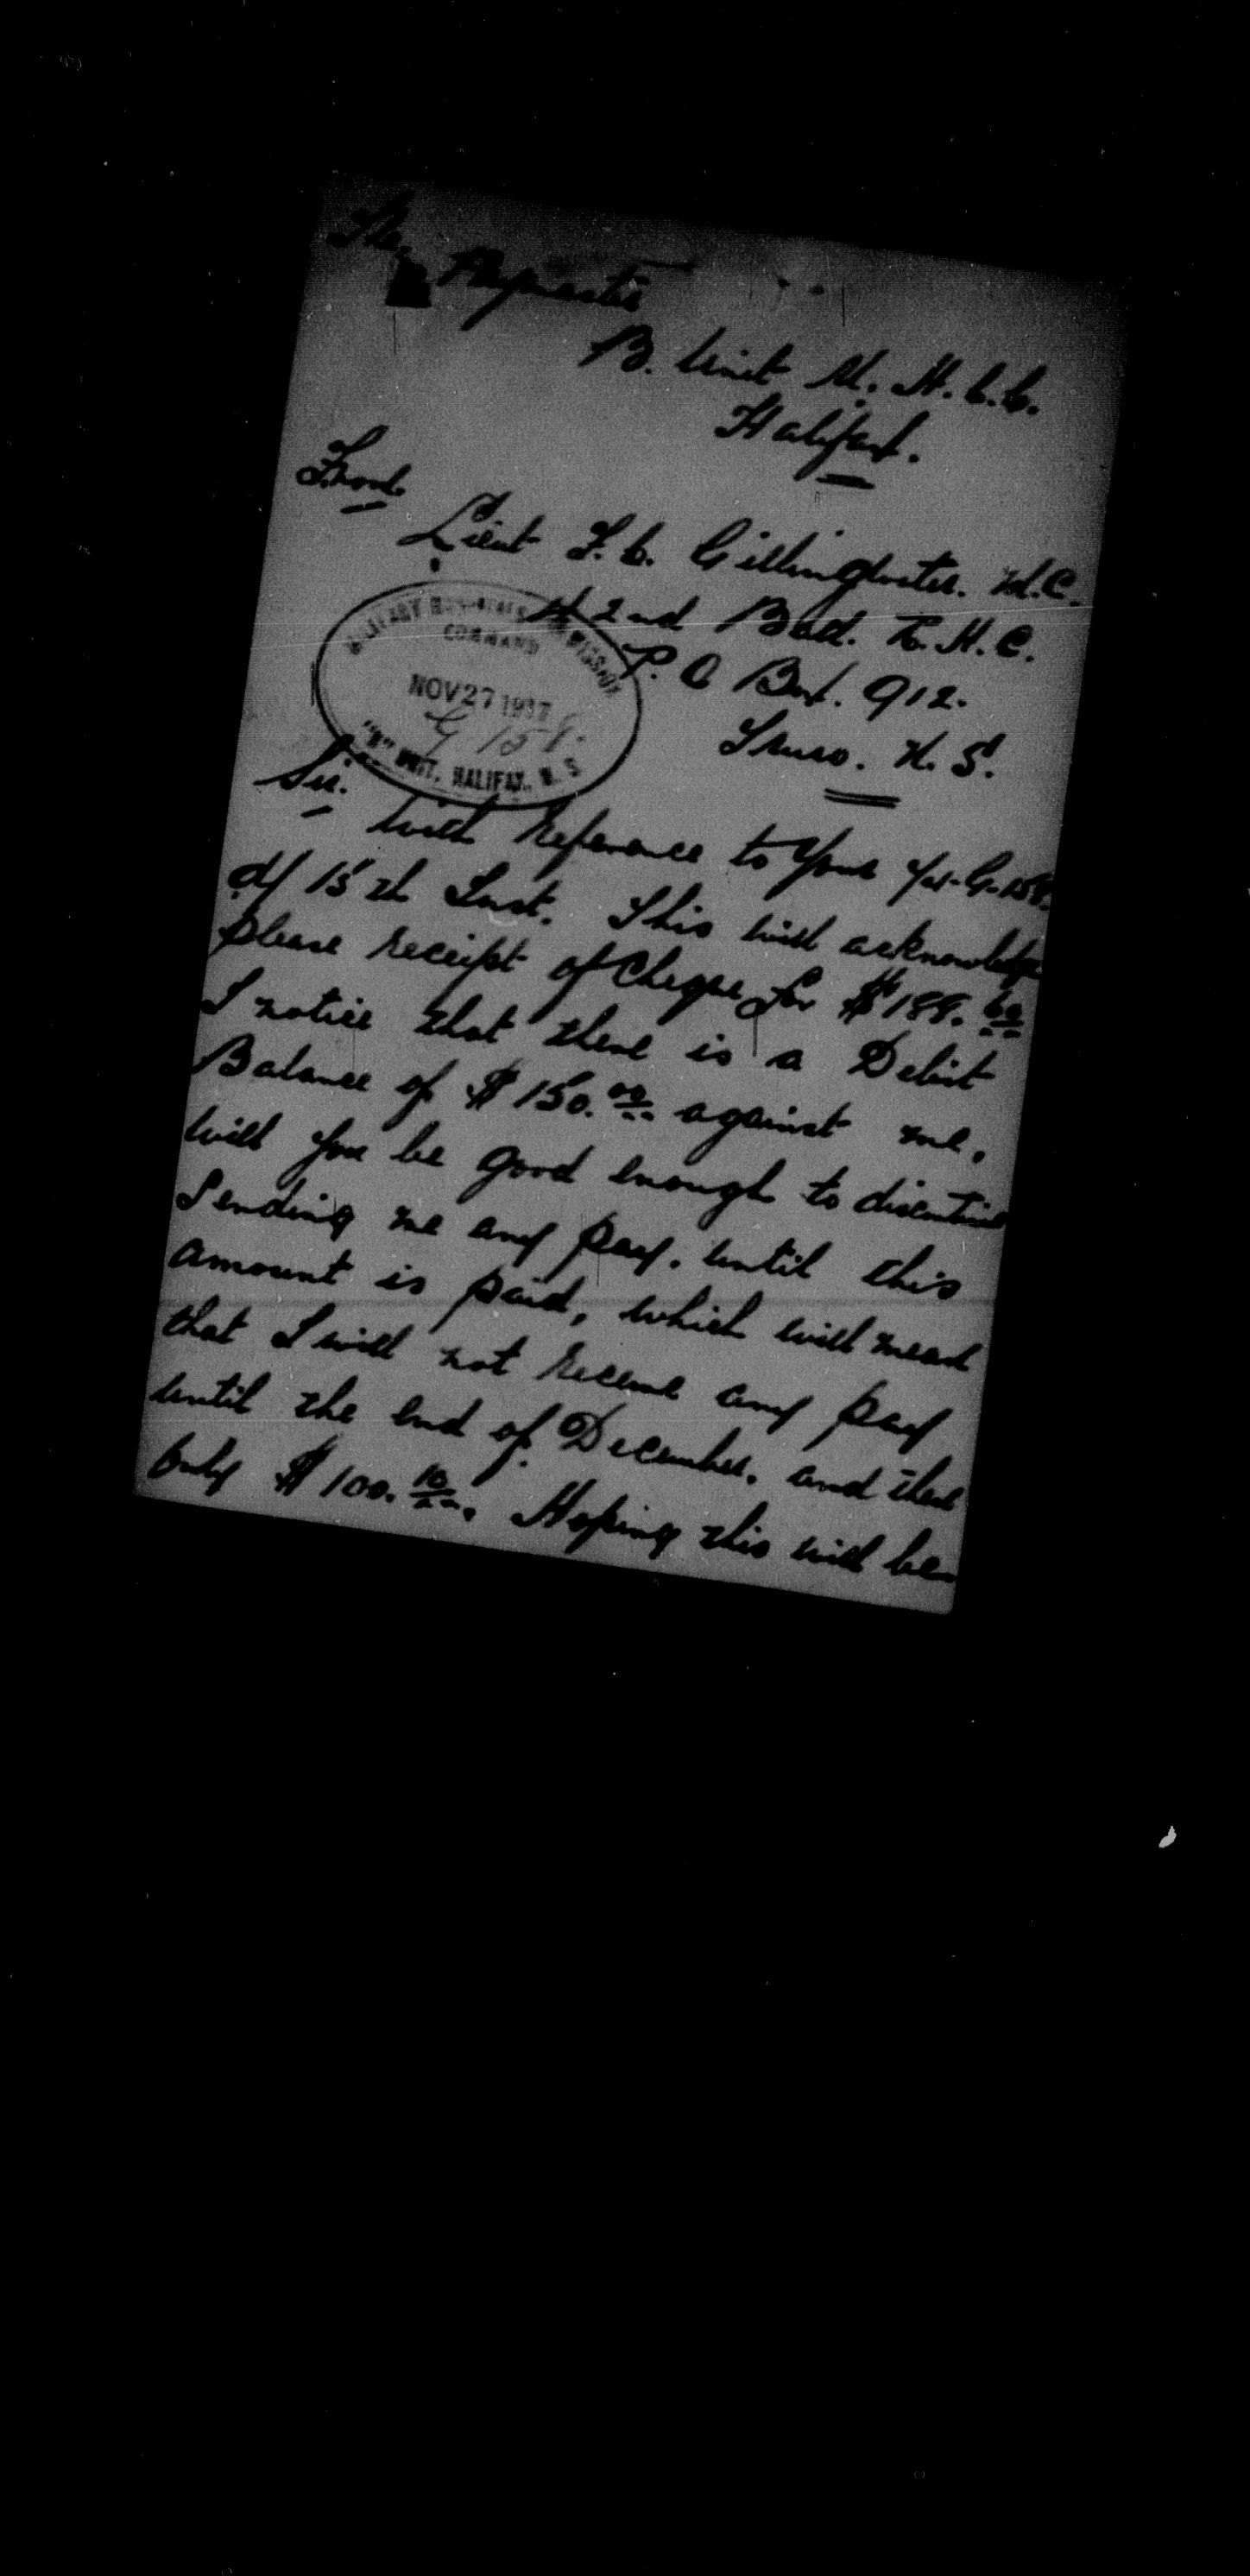 The Paymaster
B. Unit M. H. C. C.
Halifax.
From.
Lieut F. C. Gillingwater. M.C.
42nd Batt. R. H. C.
P. O Box. 912.
Truro. N. S.
MILITARY HOSPITALS COMMISSION
COMMAND
NOV 27 1917
G 158.
"B" UNIT, HALIFAX, N. S.
Sir.
With reference to your G. 158.
of 15th Inst. This will acknowledge
please receipt of Cheque for $188. 60
I notice that there is a Debit
Balance of $150. 00 against me,
will you be good enough to discontinue
sending me any pay. until this
amount is paid, which will mean
that I will not receive any pay
until the end of December. and then
only $100. 10. Hoping this will be